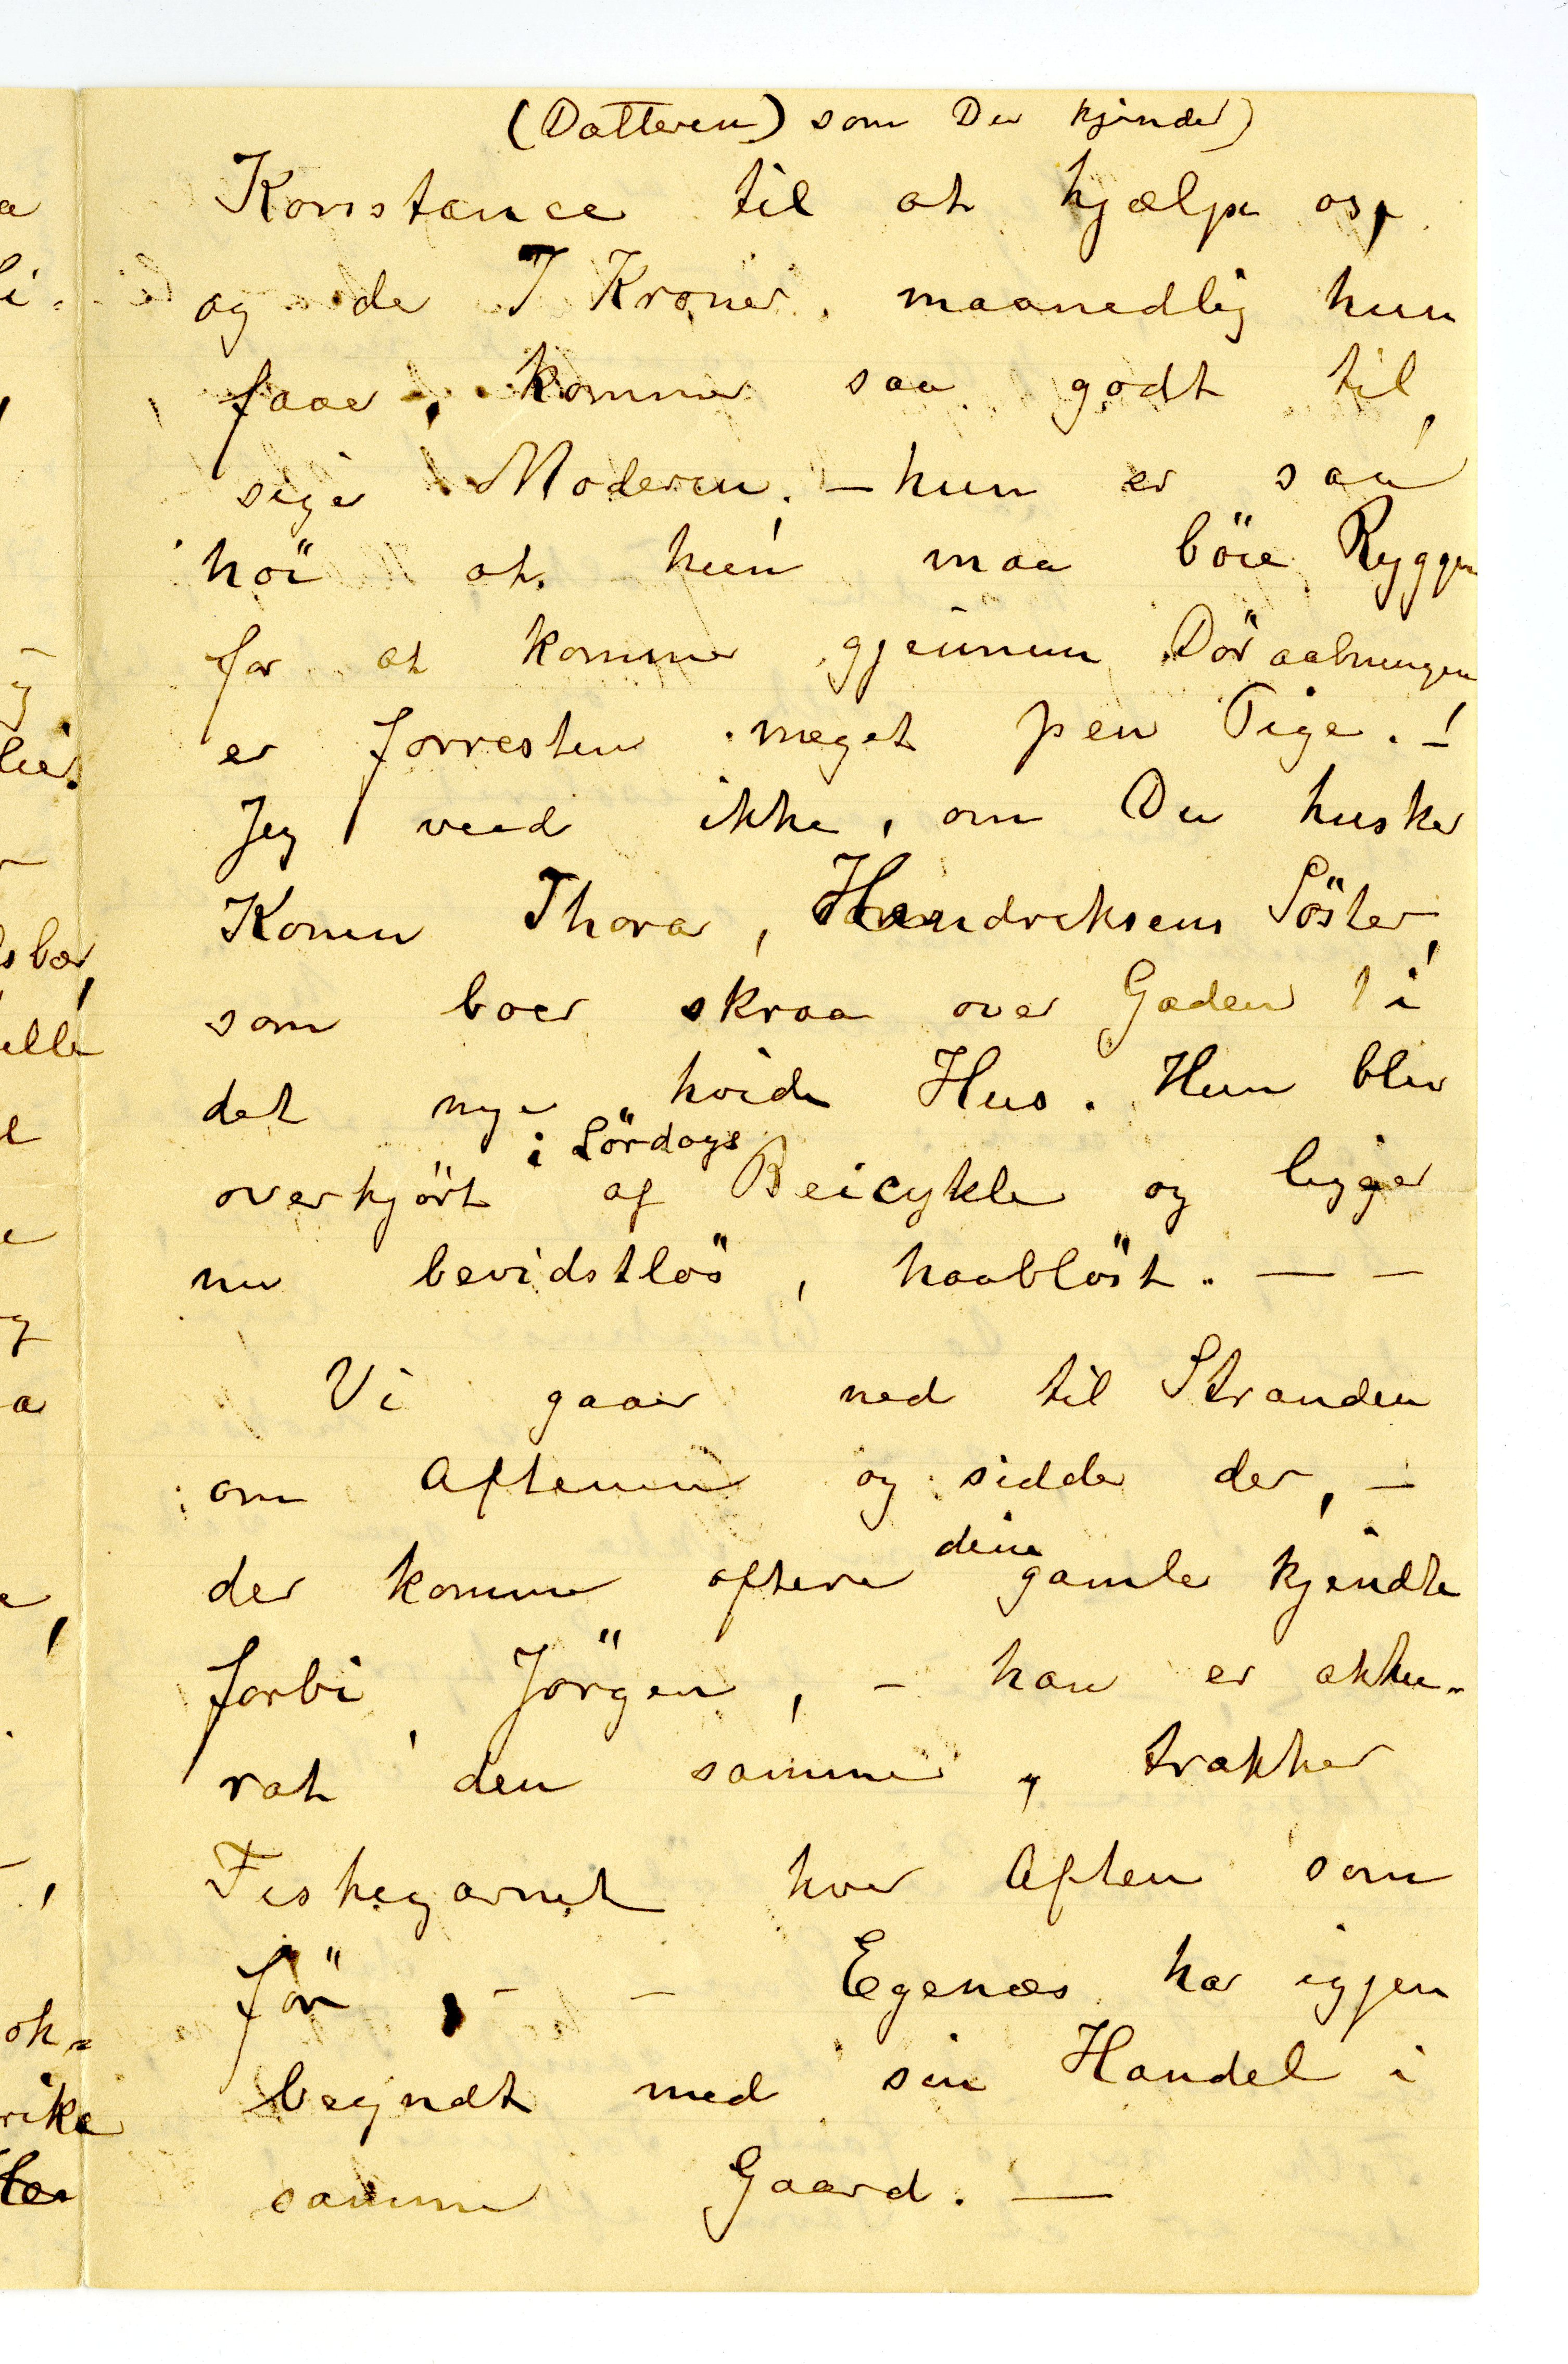 (Datteren) som Du kjender)
Konstance til at hjælpe os,
og de 7 Kroner maanedlig hun
faaer, kommer saa godt til,
siger Moderen. – hun er saa
höi at hun maa böie Ryggen
for at komme gjennem Döraabningen
er forresten meget pen Pige. –
Jeg veed ikke, om Du husker
Konen Thora, Hendriksens Söster,
som boer skraa over Gaden i
det nye hvide Hus. Hun blev
i Lördags
overkjört af Beicykle og ligger
nu bevidstlös, haablöst. — –
Vi gaaer ned til Stranden
om Aftenen og sidder der, –
dine
der kommer oftere gamle kjendte
forbi, Jörgen, – han er akku-
rat den samme, trækker
Fiskegarnet hver Aften som
för, – – Egenæs har igjen
begyndt med sin Handel i
samme Gaard. —
sbær,
rike